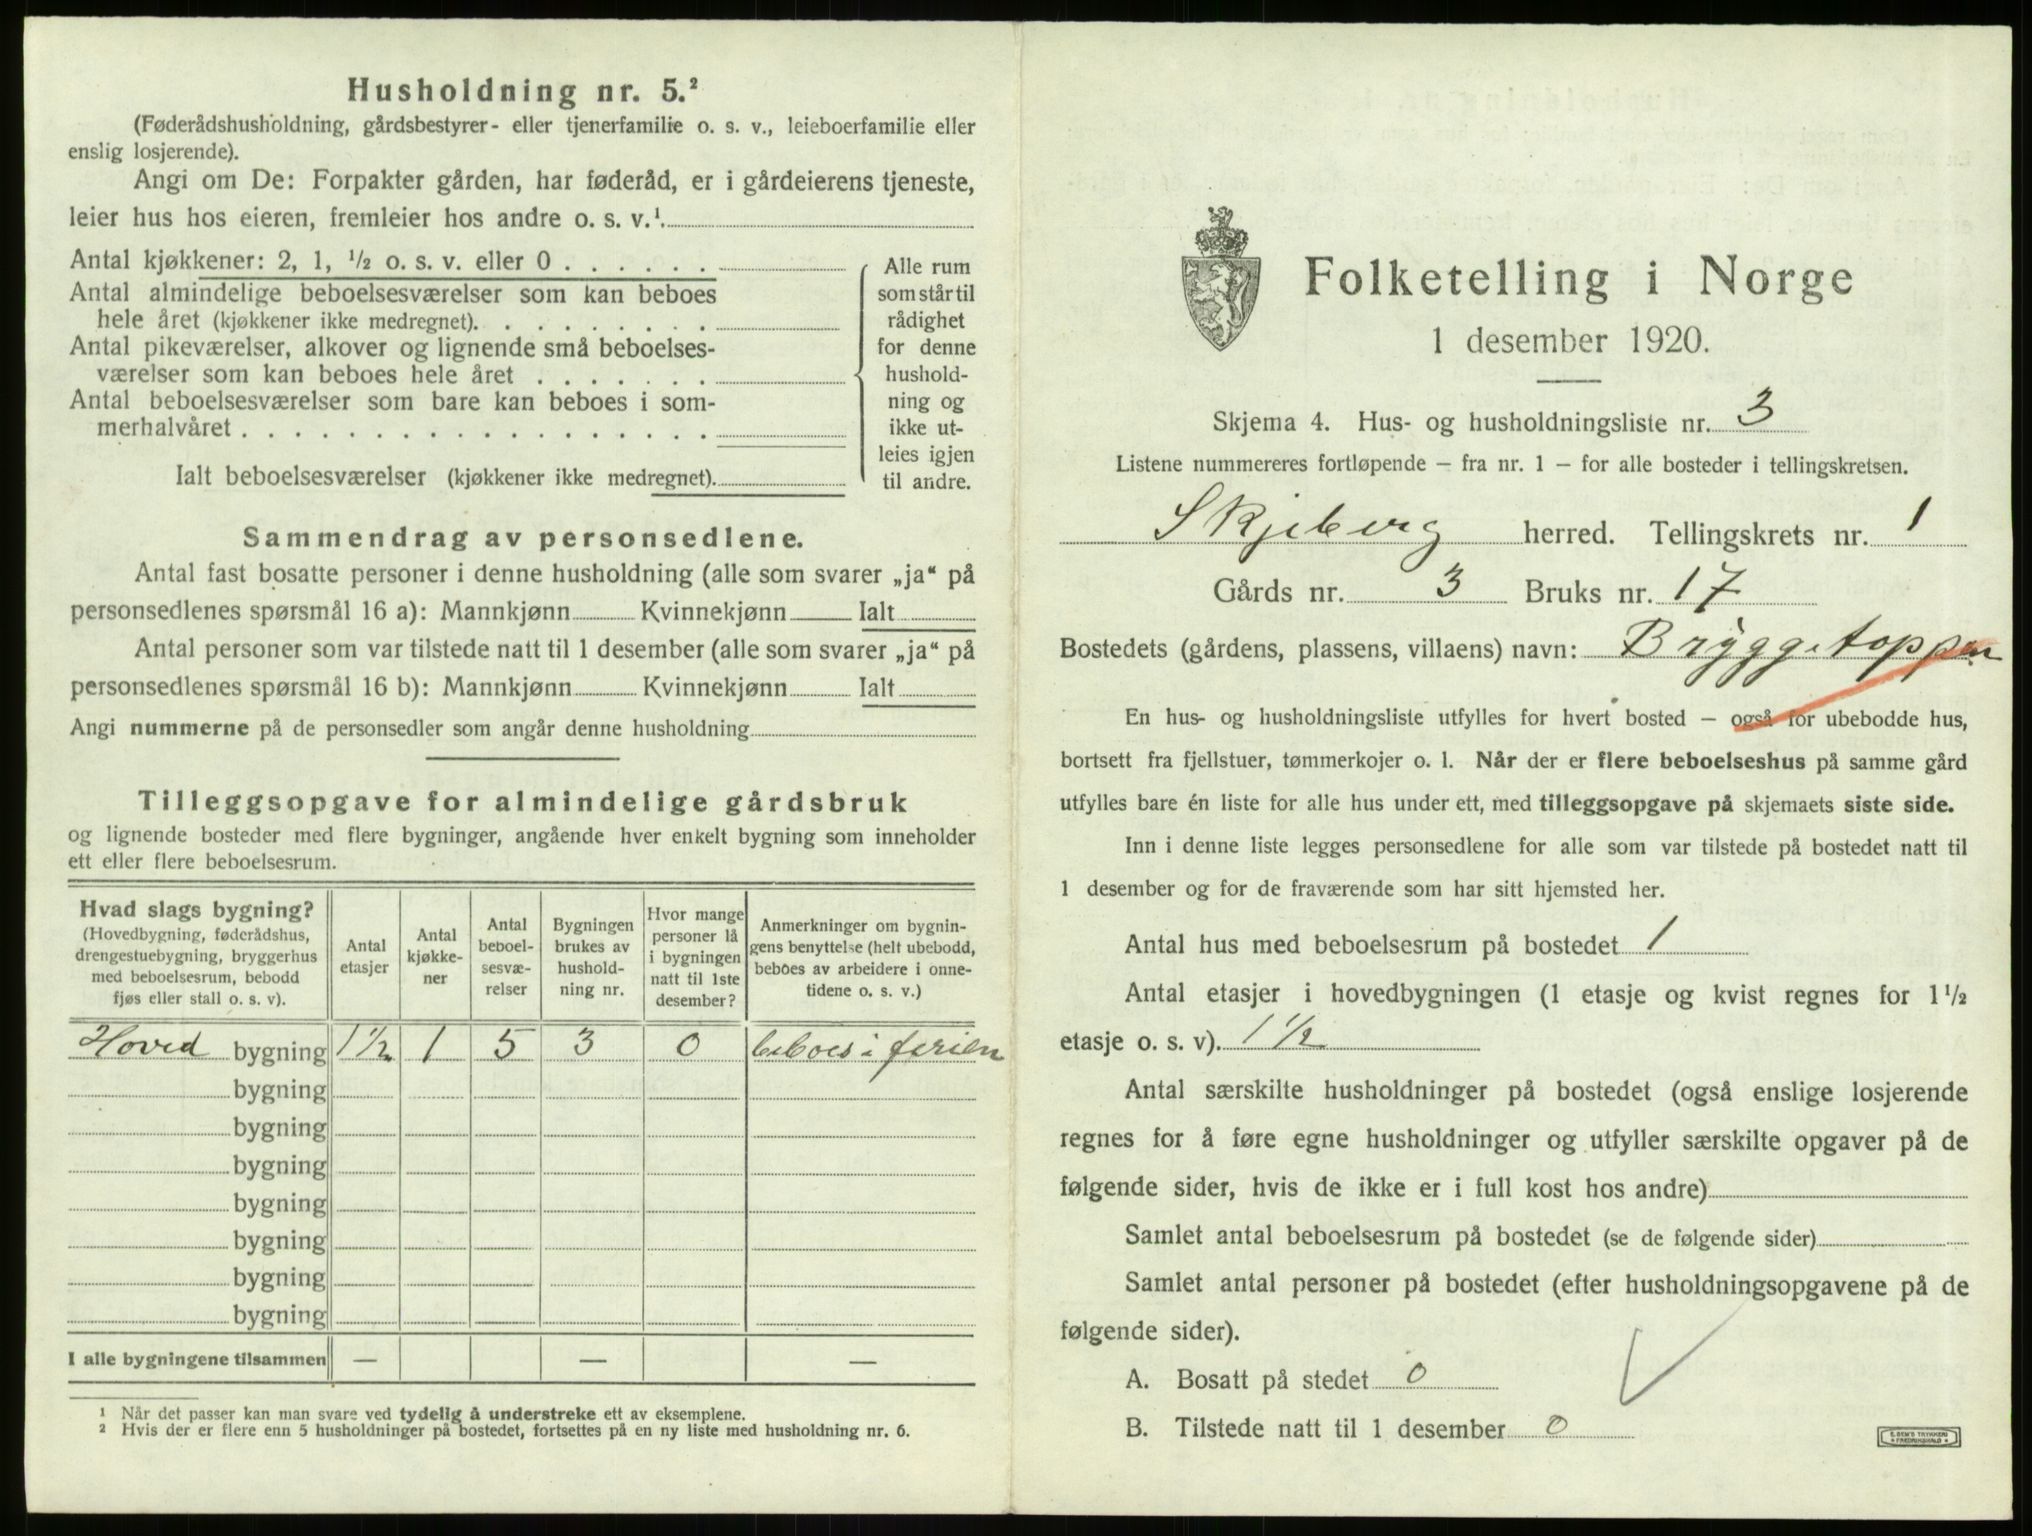 Husholdning nr. 5.²
(Føderådshusholdning, gårdsbestyrer- eller tjenerfamilie o. s. v., leieboerfamilie eller
enslig losjerende).
Angi om De: Forpakter gården, har føderåd, er i gårdeierens tjeneste,
leier hus hos eieren, fremleier hos andre o. s. v.¹
Antal kjøkkener: 2, 1, ½ o. s. v. eller 0
Antal almindelige beboelsesværelser som kan beboes
hele året (kjøkkener ikke medregnet).
Antal pikeværelser, alkover og lignende små beboelses-
værelser som kan beboes hele året
Antal beboelsesværelser som bare kan beboes i som-
merhalvåret
Ialt beboelsesværelser (kjøkkener ikke medregnet).
Alle rum
som står til
rådighet
for denne
hushold-
ning og
ikke ut-
leies igjen
til andre.
Sammendrag av personsedlene.
Antal fast bosatte personer i denne husholdning (alle som svarer „ja“ på
personsedlenes spørsmål 16 a): Mannkjønn Kvinnekjønn Ialt
Antal personer som var tilstede natt til 1 desember (alle som svarer „ja“ på
personsedlenes spørsmål 16 b): Mannkjønn Kvinnekjønn Ialt
Angi nummerne på de personsedler som angår denne husholdning
Tilleggsopgave for almindelige gårdsbruk
og lignende bosteder med flere bygninger, angående hver enkelt bygning som inneholder
ett eller flere beboelsesrum.
Hvad slags bygning?
(Hovedbygning, føderådshus,
drengestuebygning, bryggerhus
med beboelsesrum, bebodd
fjøs eller stall o. s. v).
Antal
etasjer
Antal
kjøkke-
ner
Antal
beboel-
sesvæ-
relser
Bygningen
brukes av
hushold-
ning nr.
Hvor mange
personer lå
i bygningen
natt til 1ste
desember?
Anmerkninger om bygnin-
gens benyttelse (helt ubebodd,
beboes av arbeidere i onne-
tidene o. s. v.)
Hoved bygning 1½ 1 5 3 0 beboes i ferien
bygning
bygning
bygning
bygning
bygning
bygning
bygning
I alle bygningene tilsammen — — —
¹ Når det passer kan man svare ved tydelig å understreke ett av eksemplene.
² Hvis der er flere enn 5 husholdninger på bostedet, fortsettes på en ny liste med husholdning nr. 6.
Folketelling i Norge
1 desember 1920.
Skjema 4. Hus- og husholdningsliste nr. 3
Listene nummereres fortløpende — fra nr. 1 — for alle bosteder i tellingskretsen.
Skjeberg herred. Tellingskrets nr. 1
Gårds nr. 3 Bruks nr. 17
Bostedets (gårdens, plassens, villaens) navn: Bryggetoppen
En hus- og husholdningsliste utfylles for hvert bosted — også for ubebodde hus,
bortsett fra fjellstuer, tømmerkojer o. l. Når der er flere beboelseshus på samme gård
utfylles bare én liste for alle hus under ett, med tilleggsopgave på skjemaets siste side.
Inn i denne liste legges personsedlene for alle som var tilstede på bostedet natt til
1 desember og for de fraværende som har sitt hjemsted her.
Antal hus med beboelsesrum på bostedet 1
Antal etasjer i hovedbygningen (1 etasje og kvist regnes for 1½
etasje o. s. v). 1½
Antal særskilte husholdninger på bostedet (også enslige losjerende
regnes for å føre egne husholdninger og utfyller særskilte opgaver på de
følgende sider, hvis de ikke er i full kost hos andre)
Samlet antal beboelsesrum på bostedet (se de følgende sider)
Samlet antal personer på bostedet (efter husholdningsopgavene på de
følgende sider).
A. Bosatt på stedet 0
B. Tilstede natt til 1 desember 0